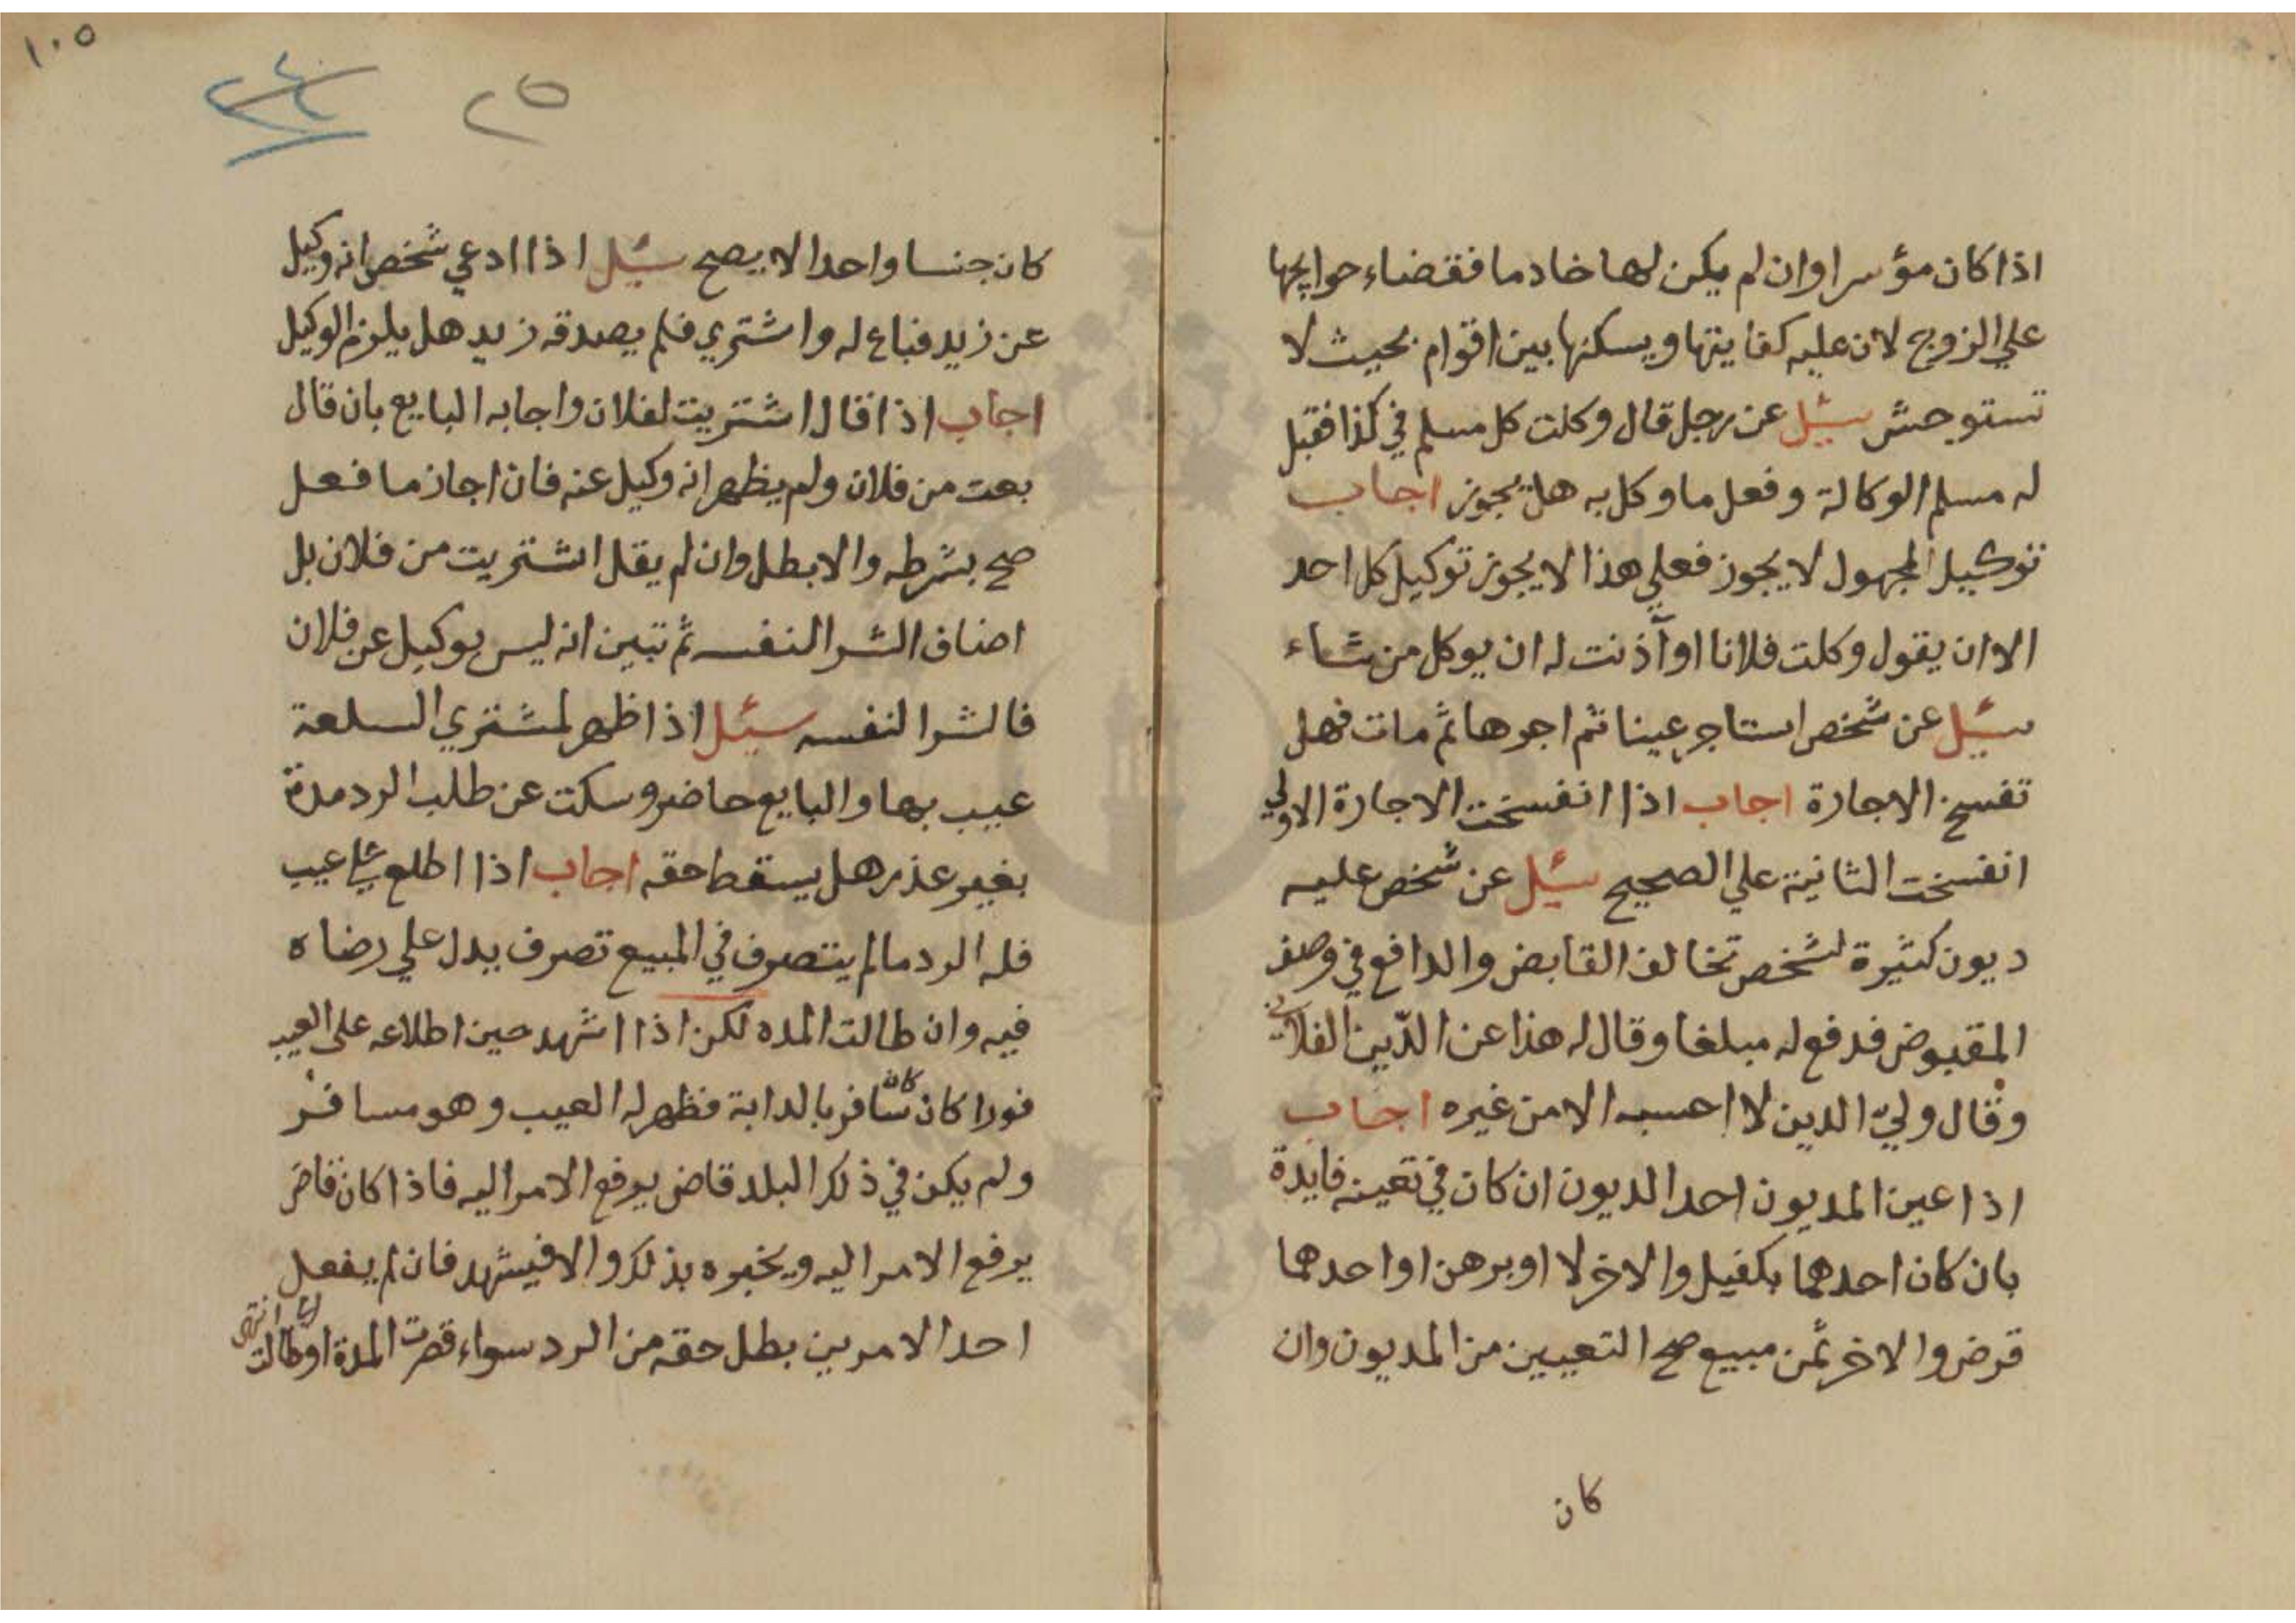 اذا كان مؤسرا وان لم يكن لها خادما فقضاء حوايجها
علي الزوج لان عليه كفايتها ويسكنها بين اقوام بحيث لا
تستوحش سئيل عن رجل قال وكلت كل مسلم في كذا فقبل
له مسلم الوكالة وفعل ما وكل به هل يجوز اجاب
توكيل المجهول لا يجوز فعلي هذا لا يجوز توكيل كل احد
الا ان يقول وكلت فلانا او آذنت له ان يوكل من شاء
سئيل عن شخص استاجر عينا ثم اجرها ثم مات فهل
تفسخ الاجارة اجاب اذا انفسخت الاجارة الاولي
انفسخت الثانية علي الصحيح سئيل عن شخص عليه
ديون كثيرة لشخص تخالف القابض والدافع في وصف
المقبوض فدفع له مبلغا وقال له هذا عن الدّين الفلاني
وقال ولي الدين لا احسبه الا من غيره اجاب
اذا عين المديون احد الديون ان كان في تعينه فايدة
بان كان احدهما بكفيل والاخر لا او برهن او احدهما
قرض والاخر ثمن مبيع صح التعيين من المديون وان
كان
١٠٥
٢٥
كان جنسا واحدا لا يصح سئيل اذا ادعي شخص انه وكيل
عن زيد فباع له واشتري فلم يصدقه زيد هل يلزم الوكيل
اجاب اذا قال اشتريت لفلان واجابه البايع بان قال
بعت من فلان ولم يظهر انه وكيل عنه فان اجاز ما فعل
صح بشرطه والا بطل وان لم يقل اشتريت من فلان بل
اضاف الشرا لنفسه ثم تبين انه ليس بوكيل عن فلان
فالشرا لنفسه سئيل اذا ظهر لمشتري السلعة
عيب بها والبايع حاضر وسكت عن طلب الرد مدة
بغير عذر هل يسقط حقه اجاب اذا اطلع علي عيب
فله الرد ما لم يتصرف في المبيع تصرف يدل علي رضاه
فيه وان طالت المده لكن اذا اشهد حين اطلاعه علي العيب
فورا كان كان سافر بالدابة فظهر له العيب وهو مسافر
ولم يكن في ذلك البلد قاض يرفع الامر اليه فاذا كان قاض
يرفع الامر اليه ويخبره بذلك والا فيشهد فان لم يفعل
احد الامرين بطل حقه من الرد سواء قصرت المدة او طالت انتهى